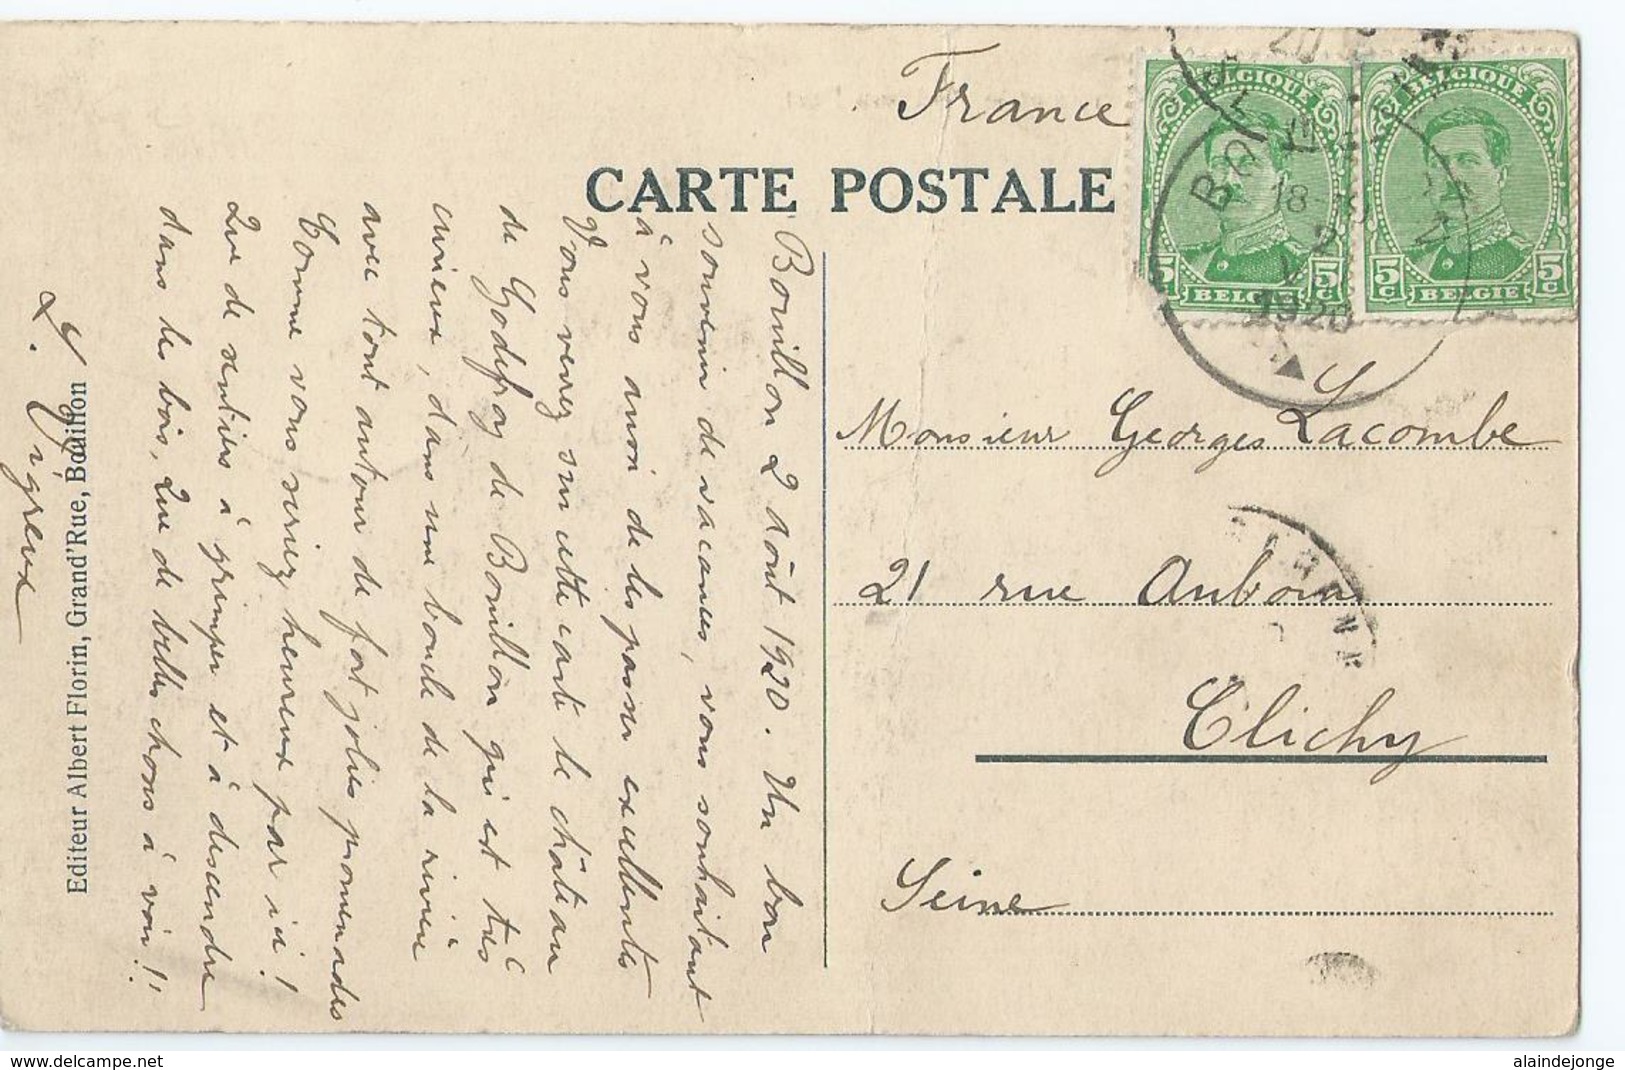 France
CARTE POSTALE
BELGIQUE
5c BELGIE 5c
BELGIQUE
5c BELGIE 5c
18-19
2
1920
Monsieur Georges Lacombe
21 rue Auboin
Clichy
Seine
Bouillon 2 août 1920. Un bon
souvenir de vacances, vous souhaitant
à vous aussi de les passer excellentes
Vous verrez sur cette carte le château
de Godefroy de Bouillon qui est très
curieux, dans une boucle de la rivière
avec tout autour de fort jolies promenades
Comme vous seriez heureux par ici!
Que de sentiers à grimper et à descendre
dans les bois, que de belles choses à voir!!
L. Vigreux
Editeur Albert Florin, Grand'Rue, Bouillon
www.delcampe.net
alaindejonge